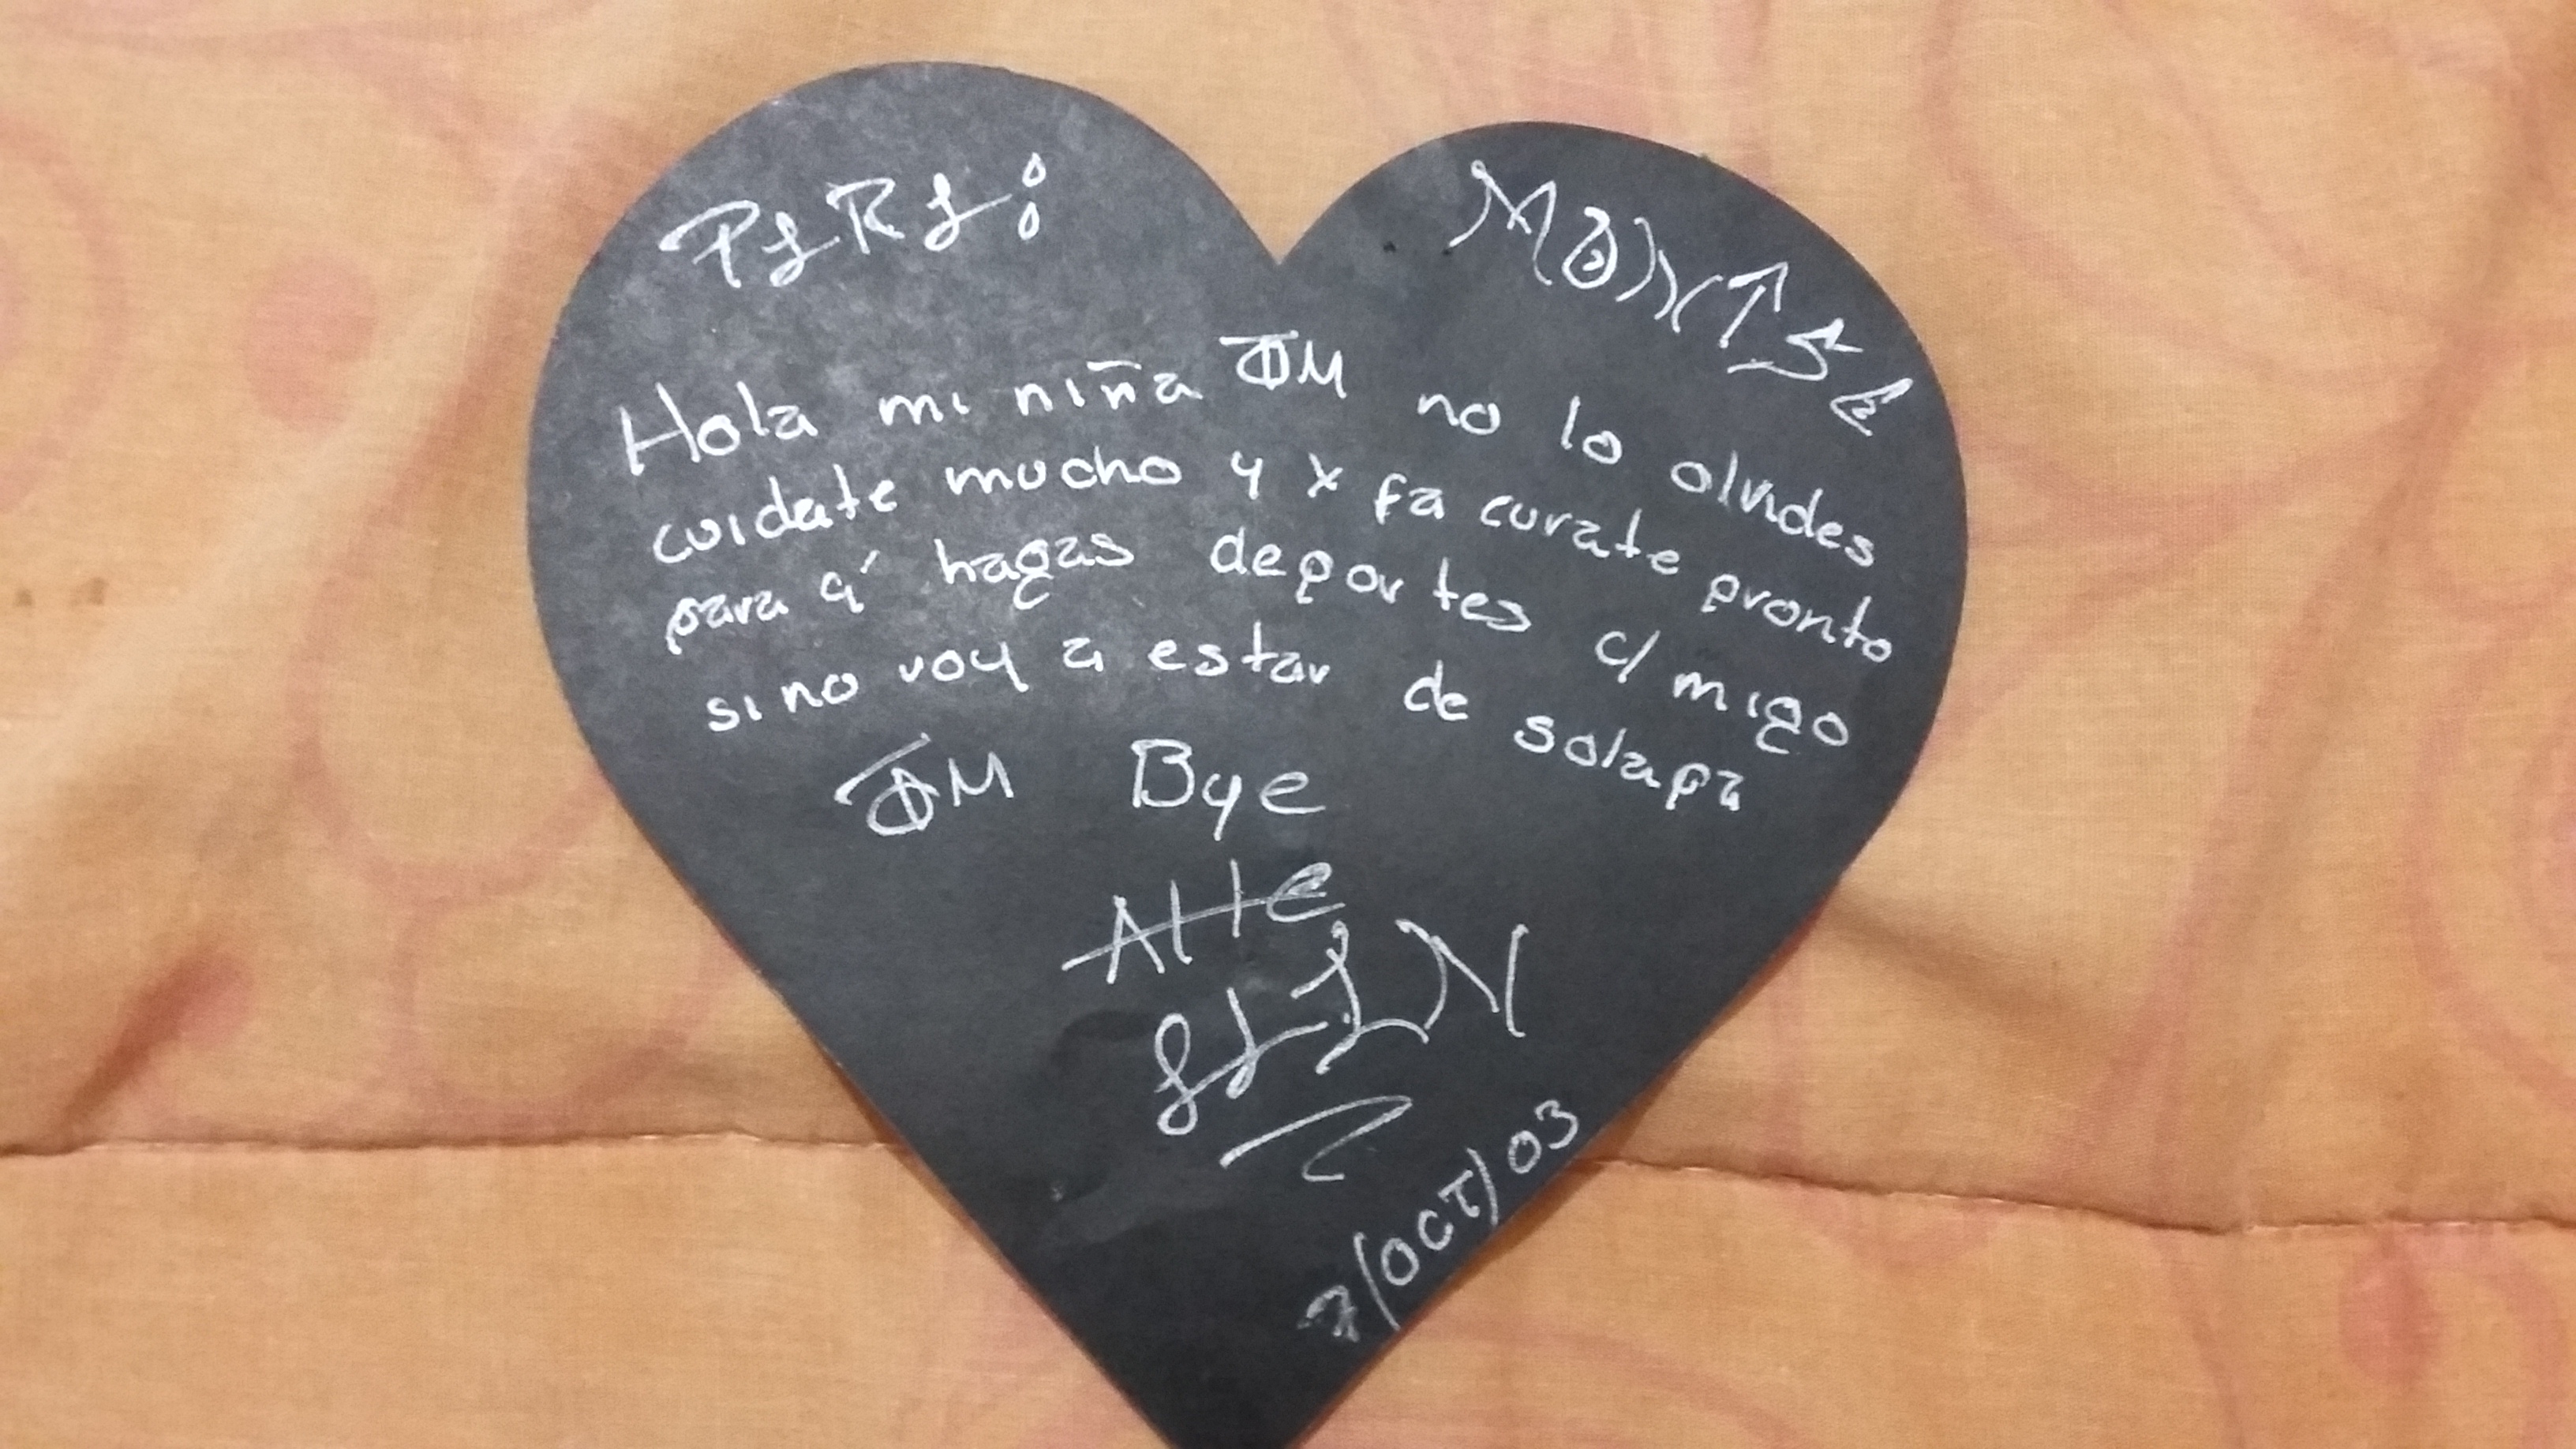 PARA: MONTSE
Hola mi niña TQM no lo olvides
cuidate mucho y x fa curate pronto
para q' hagas deportes c/migo
sino voy a estar de solapa
TQM Bye
Atte
7/OCT/03